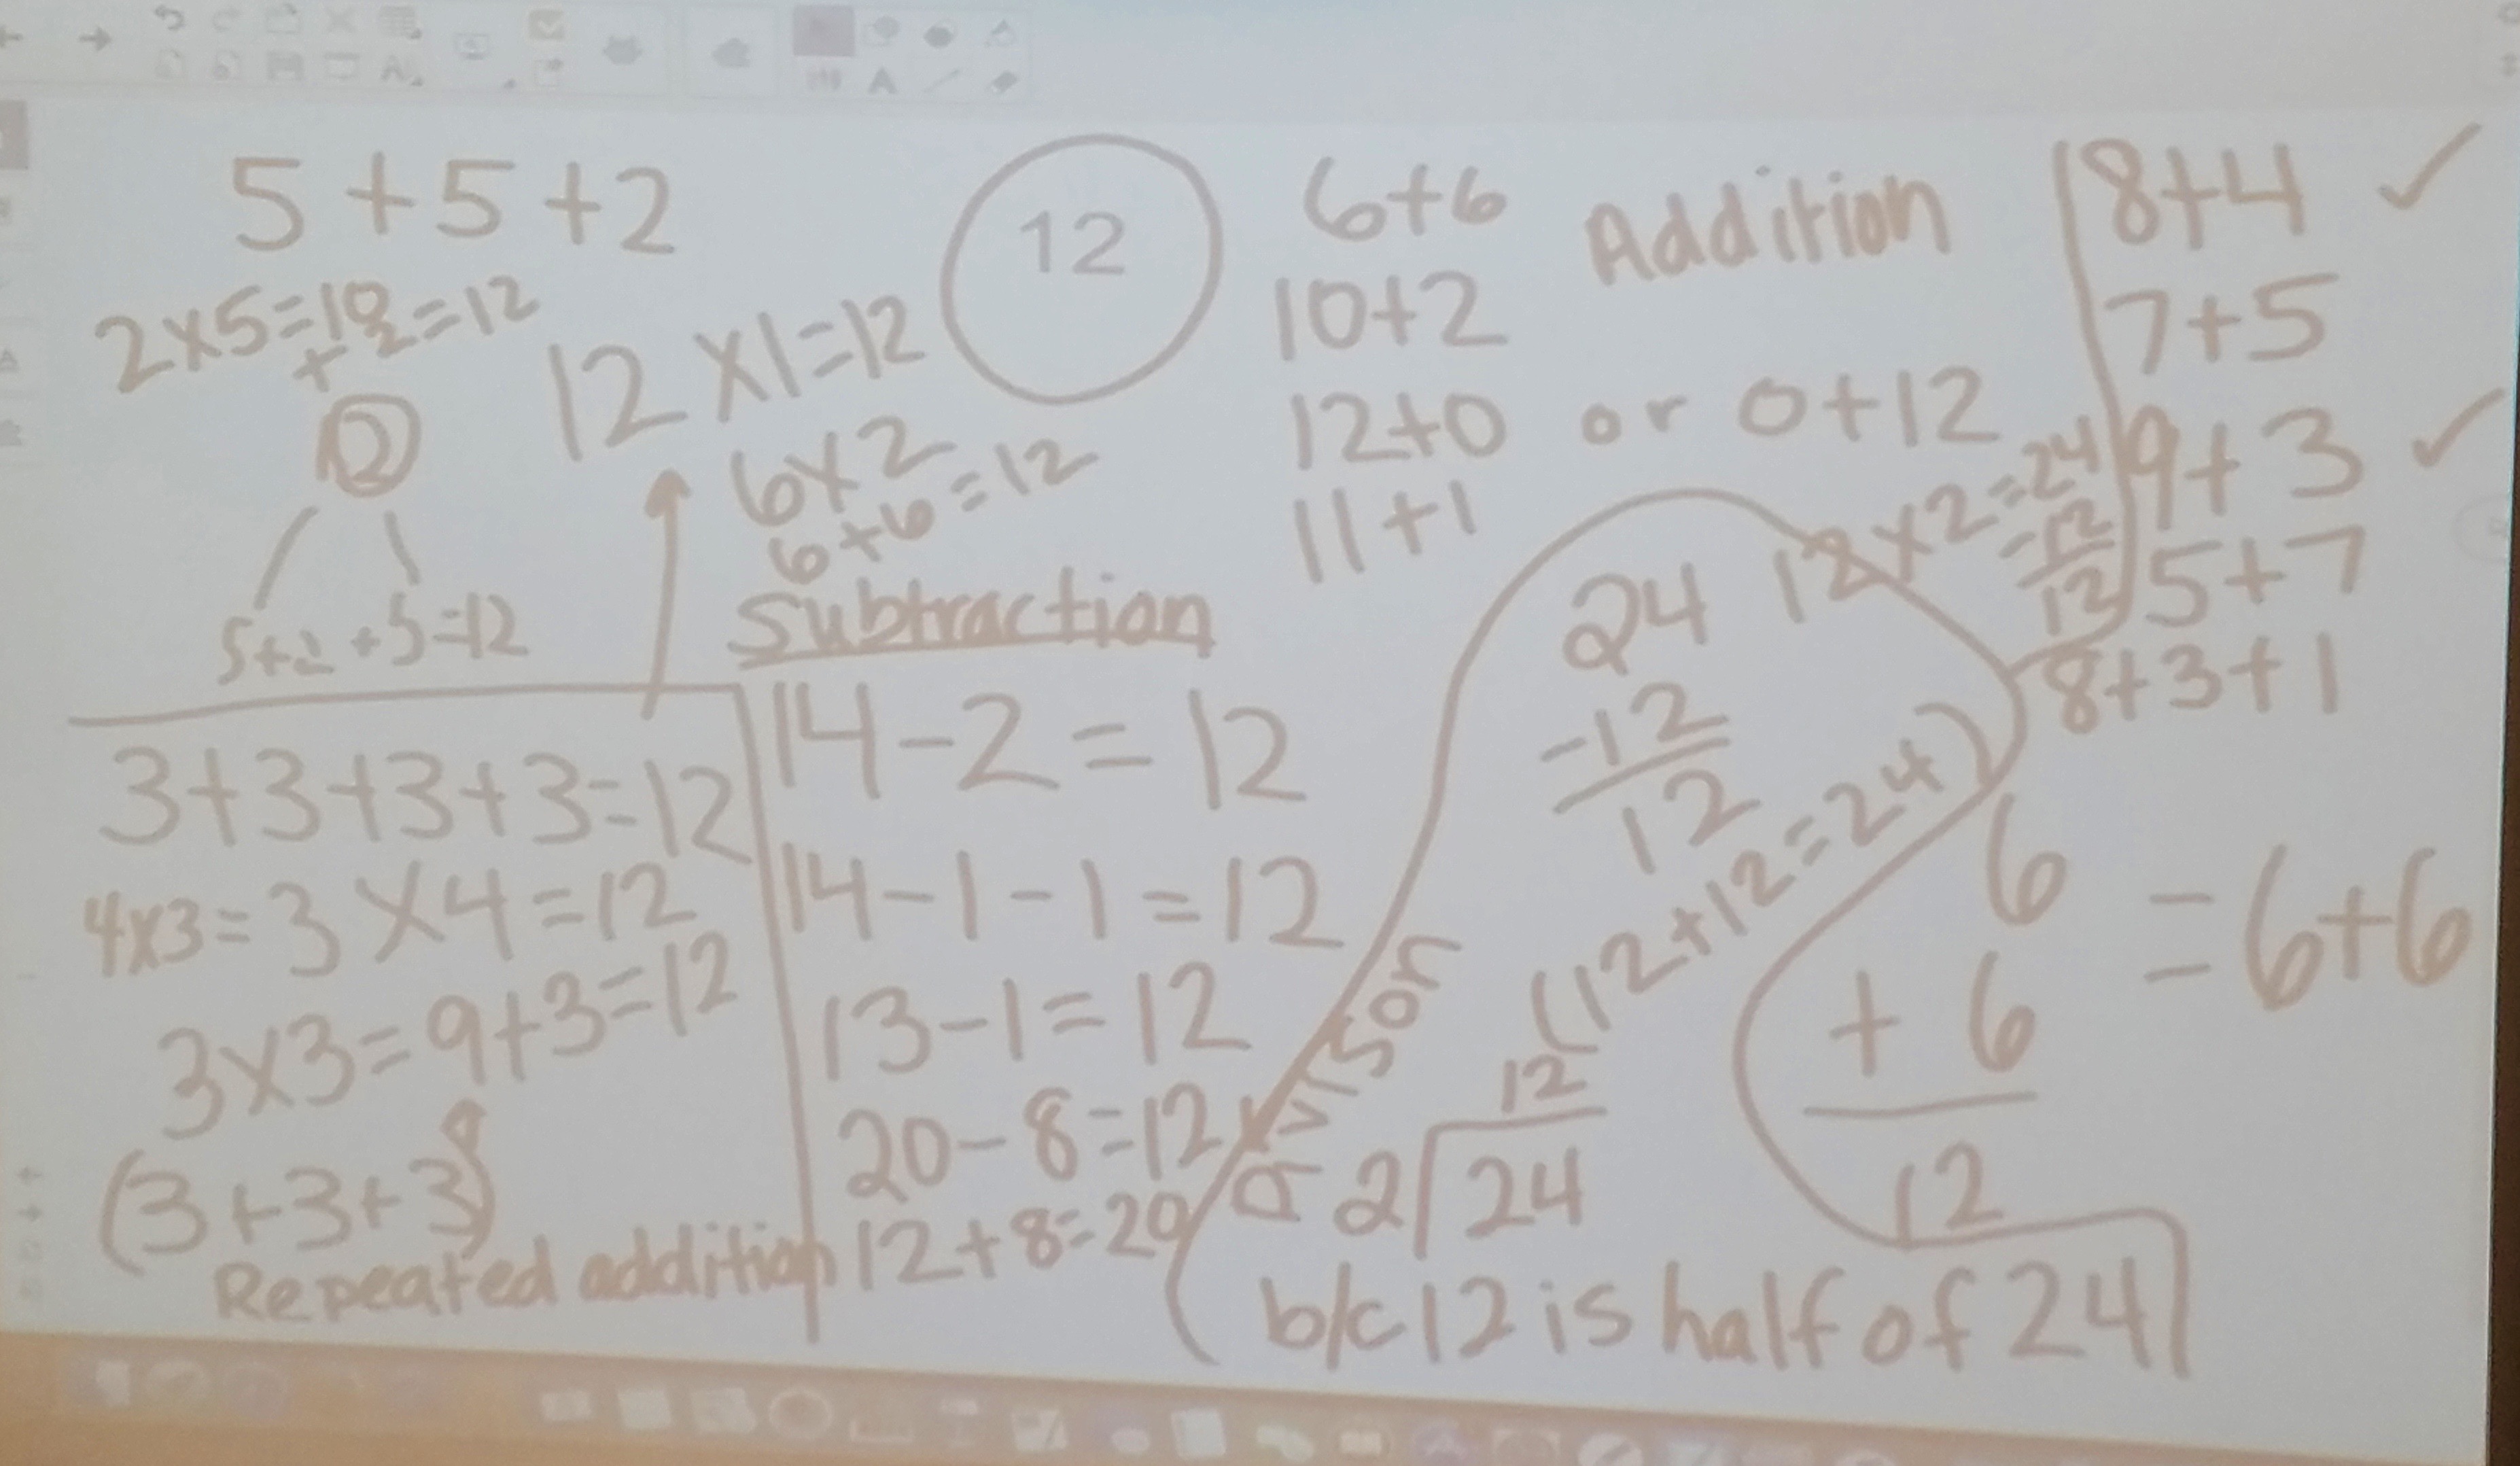 5 + 5 + 2
2x5=10
+ 2=12
2
5+2 +5=12
12 x1=12
6x2
6+6=12
12
6+6
10+2
12+0 or 0+12
11+1
Addition
8+4 ✓
7+5
9+3 ✓
5+7
8+3+1
3+3+3+3=12
4x3=3x4=12
3x3=9+3=12
(3+3+3)
Repeated addition
Subtraction
14-2=12
14-1-1=12
13-1=12
20-8=12
12+8=20
24
-12
12
12x2=24
-12
12
(12+12=24)
Divison
12
2 24
b/c 12 is half of 24
6
+ 6
12
= 6+6